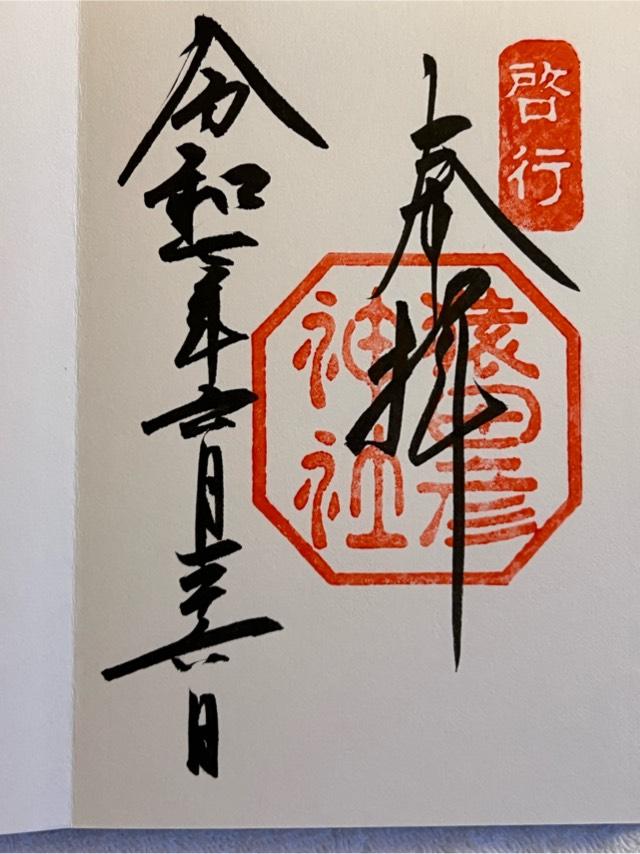 啓行
奉拝
猿田彦
神社
令和七年六月二十六日